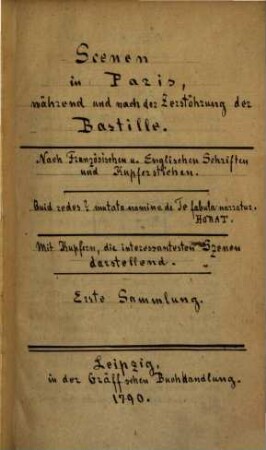 Scenen
in Paris,
während und nach der Zerstöhrung der
Bastille.
Nach Französischen u. Englischen Schriften
und Kupferstichen.
Quid redes? mutato nomine de Te fabula narratur.
HORAT.
Mit Kupfern, die interessantesten Szenen
darstellend.
Erste Sammlung.
Leipzig,
in der Gräff'schen Buchhandlung.
1790.